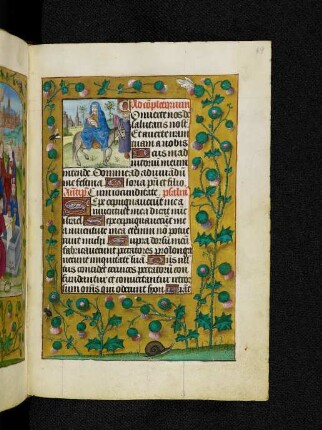 Ad completorium
Onverte nos de
salutaris nost
Et averte iram
tuam a nobis
Deus in ad
iutorium meum
intende Domine ad adiuvandu
me festina Gloria pri et filio
Ant iocunditate psalm
Sepe expugnaverunt me a
iuventute mea dicat nunc
israel Sepe expugnaverunt me
a iuventute mea etenim no potue
runt michi Supra dorsu meu
fabricaverunt peccatores prolonga
verunt iniquitate sua Dns iust
us concidet cervices peccatorū con
fundantur et convertantur retror
sum omnes qui oderunt syon Fiat